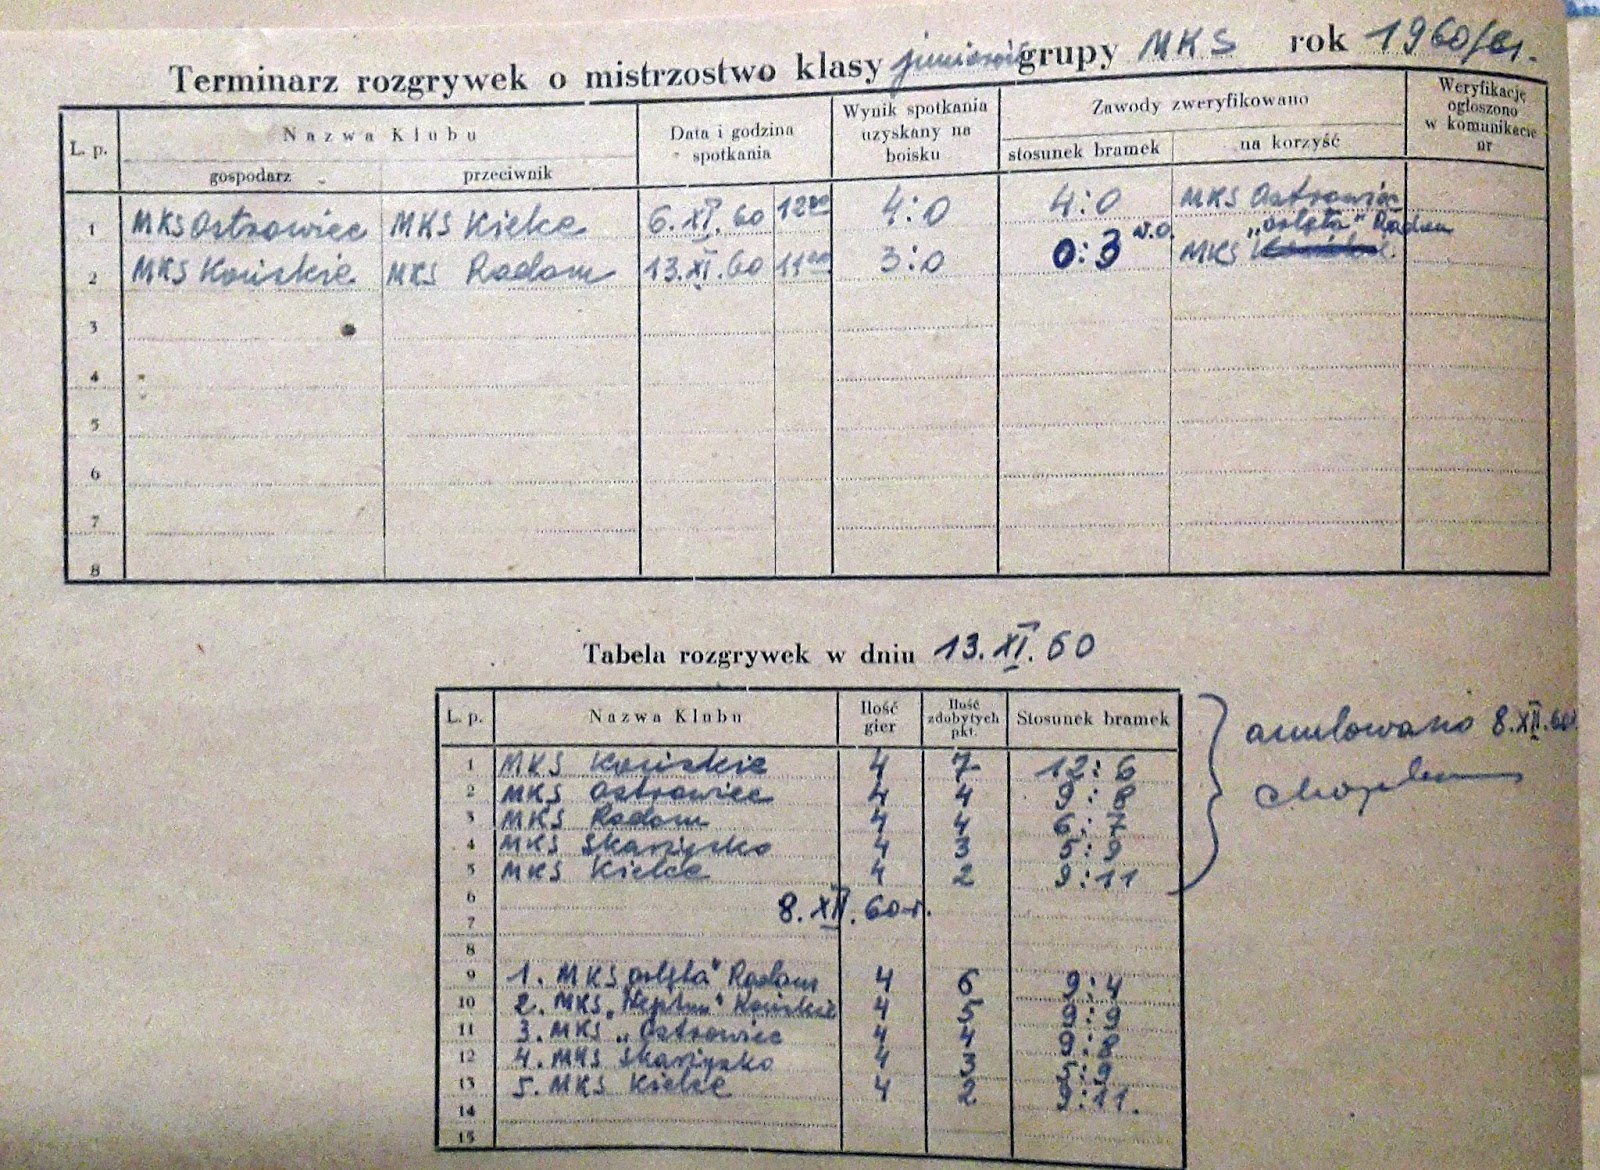 Terminarz rozgrywek o mistrzostwo klasy juniorów grupy MKS rok 1960/61.
L. p. Nazwa Klubu Data i godzina spotkania Wynik spotkania uzyskany na boisku Zawody zweryfikowano Weryfikację ogłoszono w komunikacie nr
gospodarz przeciwnik stosunek bramek na korzyść
1 MKS Ostrowiec MKS Kielce 6.XI.60 12⁰⁰ 4:0 4:0 MKS Ostrowiec
„Orlęta" Radom
2 MKS Końskie MKS Radom 13.XI.60 11⁰⁰ 3:0 0:3 v.o. MKS
3
4
5
6
7
8
Tabela rozgrywek w dniu 13.XI.60
L. p. Nazwa Klubu Ilość gier Ilość zdobytych pkt. Stosunek bramek
1 MKS Końskie 4 7 12:6
2 MKS Ostrowiec 4 4 9:8
3 MKS Radom 4 4 6:7
4 MKS Skarżysko 4 3 5:9
5 MKS Kielce 4 2 9:11
anulowano 8.XII.60r.
6
8.XII.60r.
7
8
9 1. MKS „Orlęta" Radom 4 6 9:4
10 2. MKS „Neptun" Końskie 4 5 9:9
11 3. MKS „Ostrowiec 4 4 9:8
12 4. MKS Skarżysko 4 3 5:9
13 5. MKS Kielce 4 2 9:11.
14
15